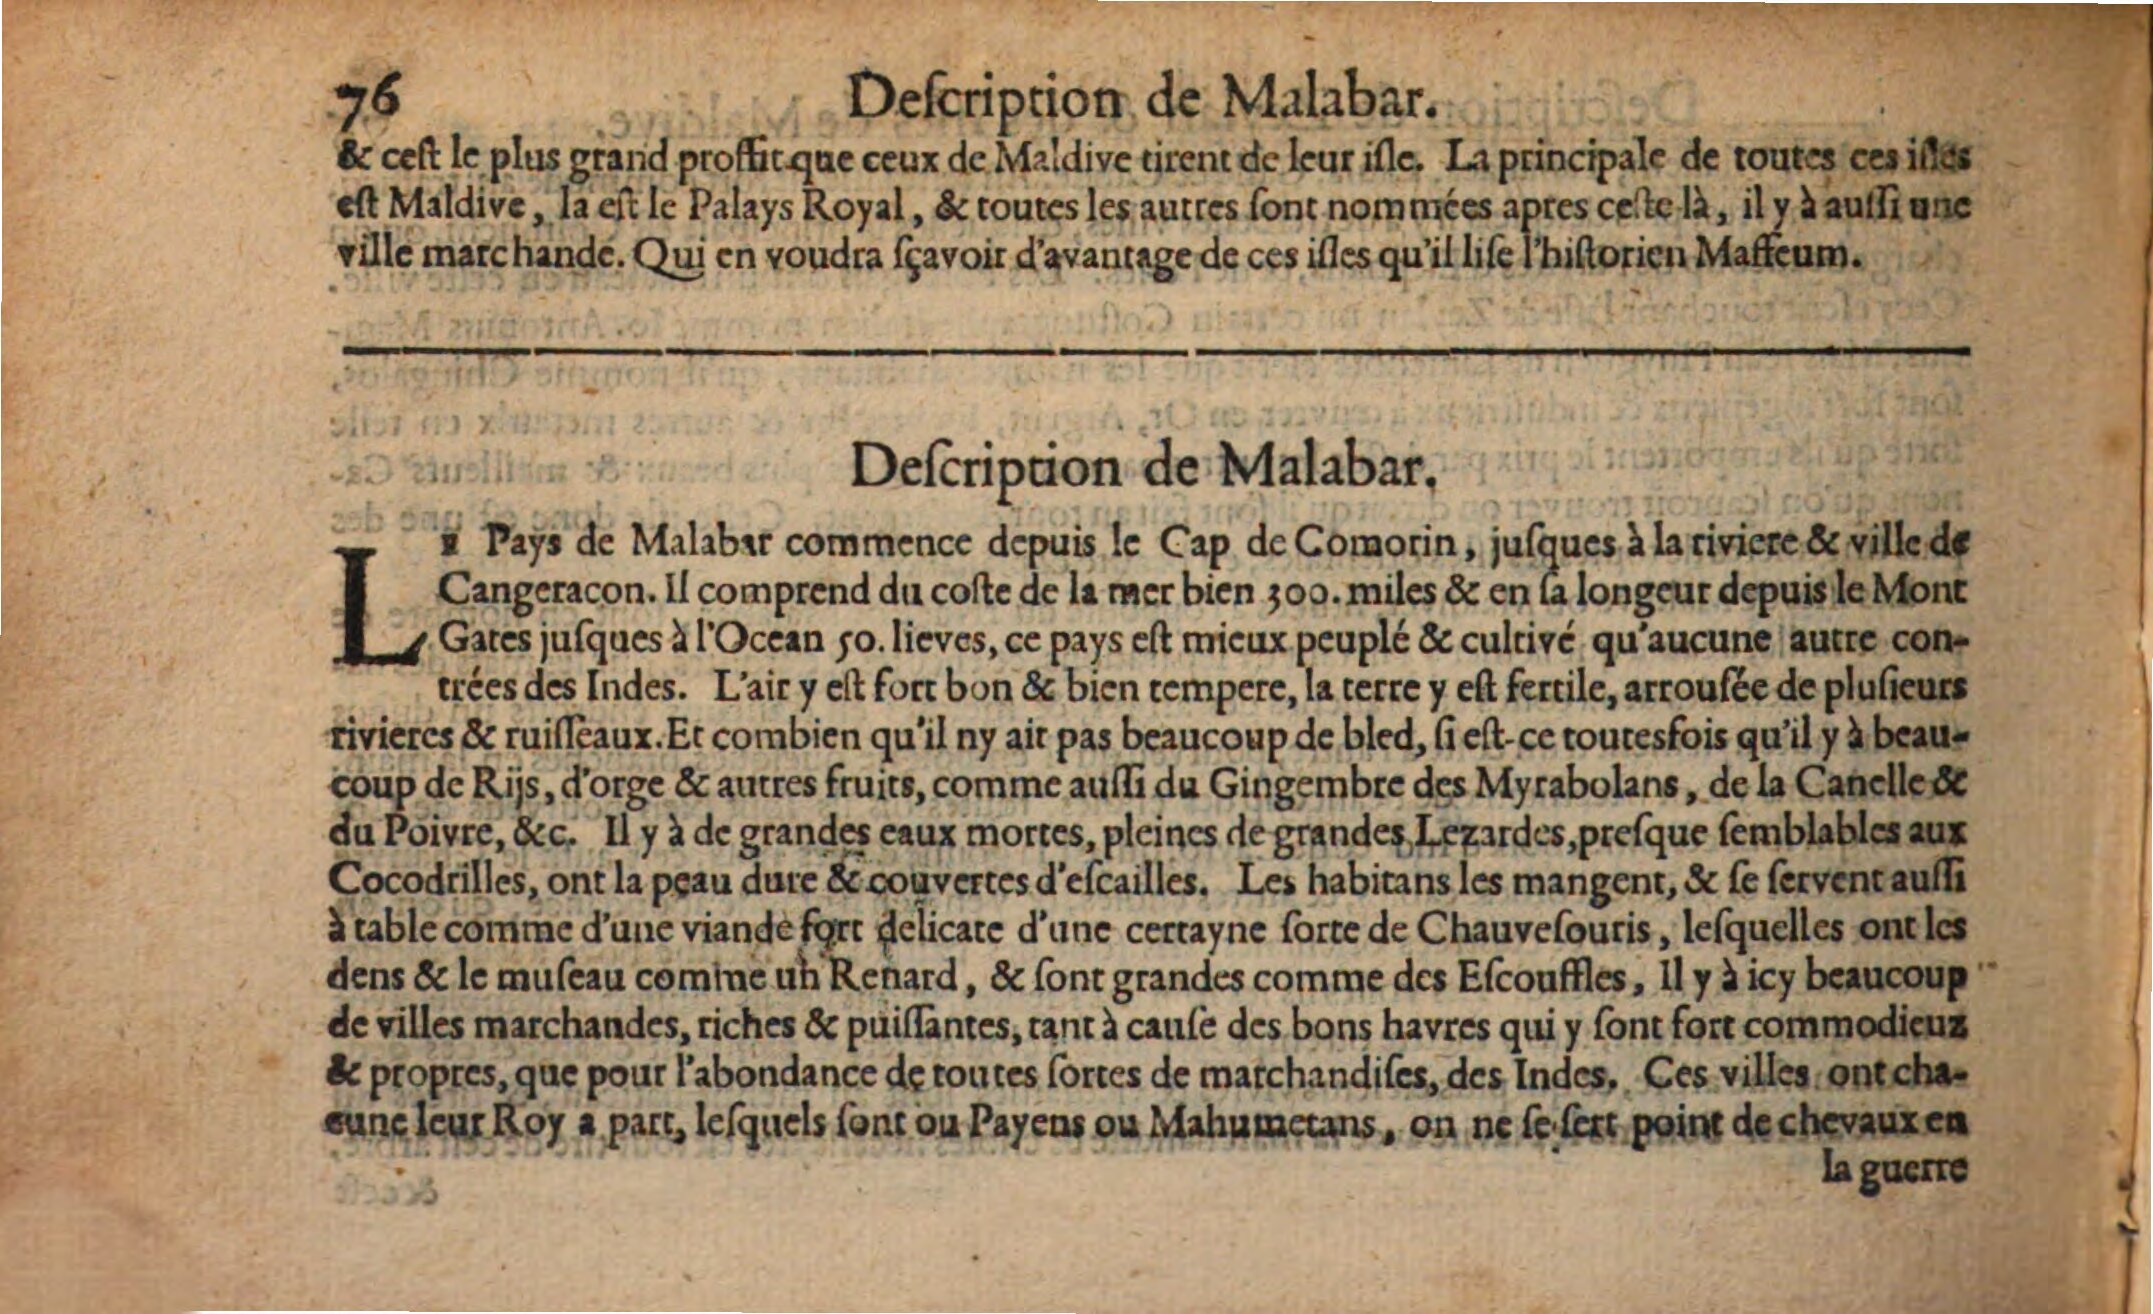 76 Deſcription de Malabar.
& ceſt le plus grand proffit que ceux de Maldive tirent de leur iſle. La principale de toutes ces iſles
eſt Maldive, la eſt le Palays Royal, & toutes les autres ſont nommées apres ceſte là, il y à auſſi une
ville marchande. Qui en voudra ſçavoir d'avantage de ces iſles qu'il liſe l'hiſtorien Maffeum.
Deſcription de Malabar.
LE Pays de Malabar commence depuis le Cap de Comorin, juſques à la riviere & ville de
Cangeracon. Il comprend du coſte de la mer bien 300. miles & en ſa longeur depuis le Mont
Gates juſques à l'Ocean 50. lieves, ce pays eſt mieux peuplé & cultivé qu'aucune autre con-
trées des Indes. L'air y eſt fort bon & bien tempere, la terre y eſt fertile, arrouſée de pluſieurs
rivieres & ruiſſeaux. Et combien qu'il ny ait pas beaucoup de bled, ſi eſt-ce toutesfois qu'il y à beau-
coup de Rijs, d'orge & autres fruits, comme auſſi du Gingembre des Myrabolans, de la Canelle &
du Poivre, &c. Il y à de grandes eaux mortes, pleines de grandes Lezardes, preſque ſemblables aux
Cocodrilles, ont la peau dure & couvertes d'eſcailles. Les habitans les mangent, & ſe ſervent auſſi
à table comme d'une viande fort delicate d'une certayne ſorte de Chauveſouris, leſquelles ont les
dens & le muſeau comme un Renard, & ſont grandes comme des Eſcouffles, Il y à icy beaucoup
de villes marchandes, riches & puiſſantes, tant à cauſe des bons havres qui y ſont fort commodieux
& propres, que pour l'abondance de toutes ſortes de marchandiſes, des Indes. Ces villes ont cha-
cune leur Roy a part, leſquels ſont ou Payens ou Mahumetans, on ne ſe ſert point de chevaux en
la guerre